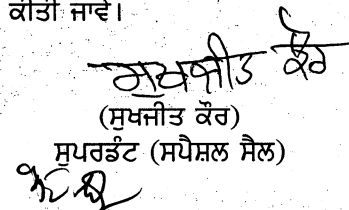 ਕੀਤੀ ਜਾਵੇ।
ਸੁਖਜੀਤ ਕੌਰ
(ਸੁਖਜੀਤ ਕੌਰ)
ਸੁਪਰਡੰਟ (ਸਪੈਸ਼ਲ ਸੈਲ)